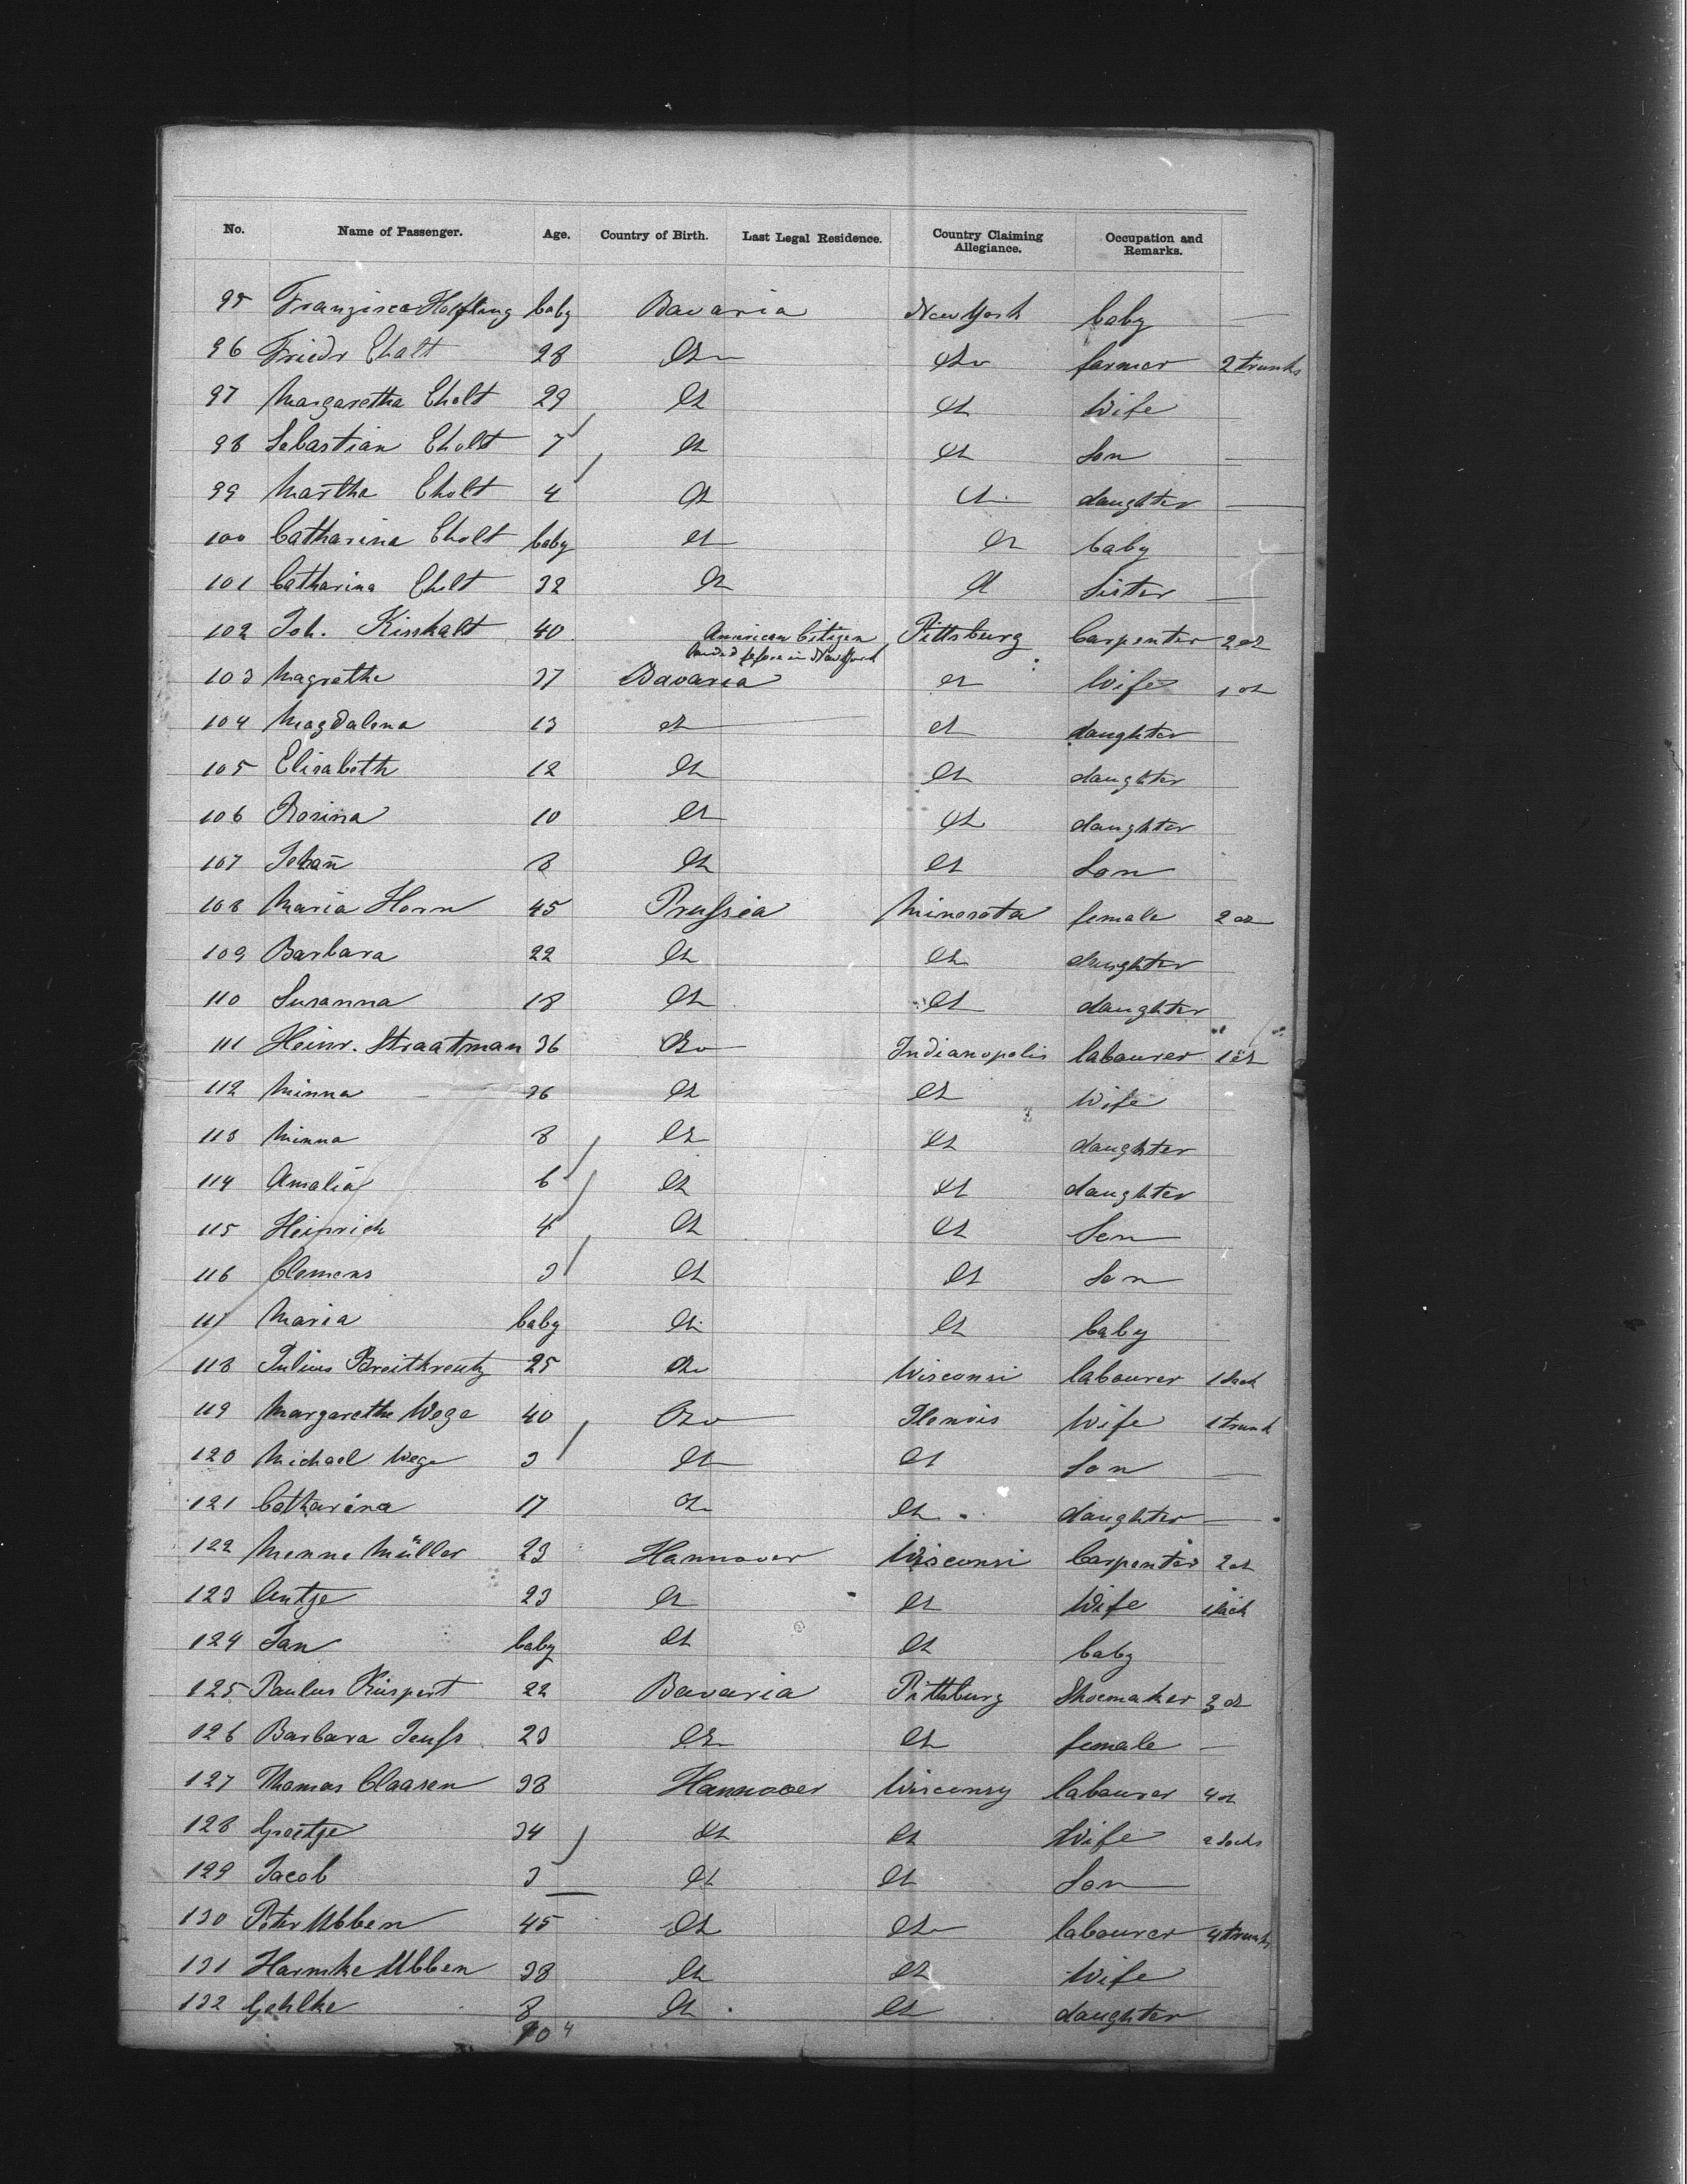 No. Name of Passenger. Age. Country of Birth. Last Legal Residence. Country Claiming Allegiance. Occupation and Remarks.
95 Franzisca baby Bavaria New York baby —
96 Friedr Eholt 28 do do farmer 2 trunks
97 Margaretha Eholt 29 do do Wife
98 Sebastian Eholt 7 do do Son —
99 Martha Eholt 4 do do daughter —
100 Catharina Eholt baby do do baby
101 Catharina Eholt 32 do do Sister —
102 Joh. Kisskalt 40 American Citizen landed before in New York Pittsburg Carpenter 2 do
103 Magrethe 37 Bavaria do Wife 1 do
104 Magdalena 13 do do daughter
105 Elisabeth 12 do do daughter
106 Rosina 10 do do daughter
107 Johañ 8 do do Son
108 Maria Horn 45 Prussia Minesota female 2 do
109 Barbara 22 do do daughter
110 Susanna 18 do do daughter
111 Heinr. Straatman 36 do Indianopolis labourer 1 do
112 Minna 36 do do Wife
113 Minna 8 do do daughter
114 Amalia 6 do do daughter
115 Heinrich 4 do do Son
116 Clemens 3 do do Son
117 Maria baby do do baby
118 Julius Breitkreutz 25 do Wisconsi labourer 1 Sack
119 Margarethe Wege 40 do Ilenois Wife 1 trunk
120 Michael Wege 3 do do Son —
121 Catharina 17 do do daughter —
122 Menne Müller 23 Hannover Wisconsi Carpenter 2 do
123 Antje 23 do do Wife 1 Sack
124 Jan baby do do baby
125 Paulus Küspert 22 Bavaria Pittsburg Shoemaker 3 do
126 Barbara 23 do do female —
127 Thomas Claasen 38 Hannover Wisconsy labourer 4 do
128 Greetje 34 do do Wife 2 Sacks
129 Jacob 3 do do Son
130 Peter Ubben 45 do do labourer 4 trunks
131 Harmke Ubben 38 do do Wife
132 Gehlke 8 do do daughter